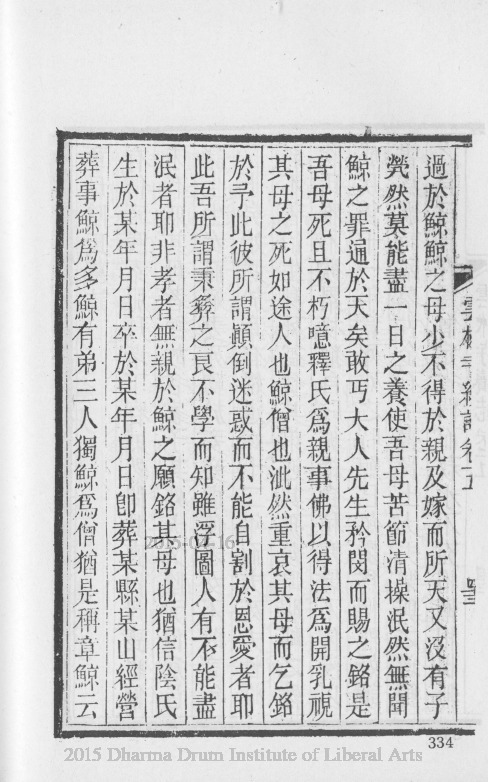 過於鯨鯨之母少不得於親及嫁而所天又沒有子
煢然莫能盡一日之養使吾母苦節清操泯然無聞
鯨之罪通於天矣敢丐大人先生矜閔而賜之銘是
吾母死且不朽噫釋氏爲親事佛以得法爲開乳視
其母之死如途人也鯨僧也泚然重哀其母而乞銘
於予此彼所謂顚倒迷惑而不能自割於恩愛者耶
此吾所謂秉彝之良不學而知雖浮圖人有不能盡
泯者耶非孝者無親於鯨之願銘其母也猶信陰氏
生於某年月日卒於某年月日卽葬某縣某山經營
葬事鯨爲多鯨有弟三人獨鯨爲僧猶是稱章鯨云
334
2015-07-16
2015 Dharma Drum Institute of Liberal Arts